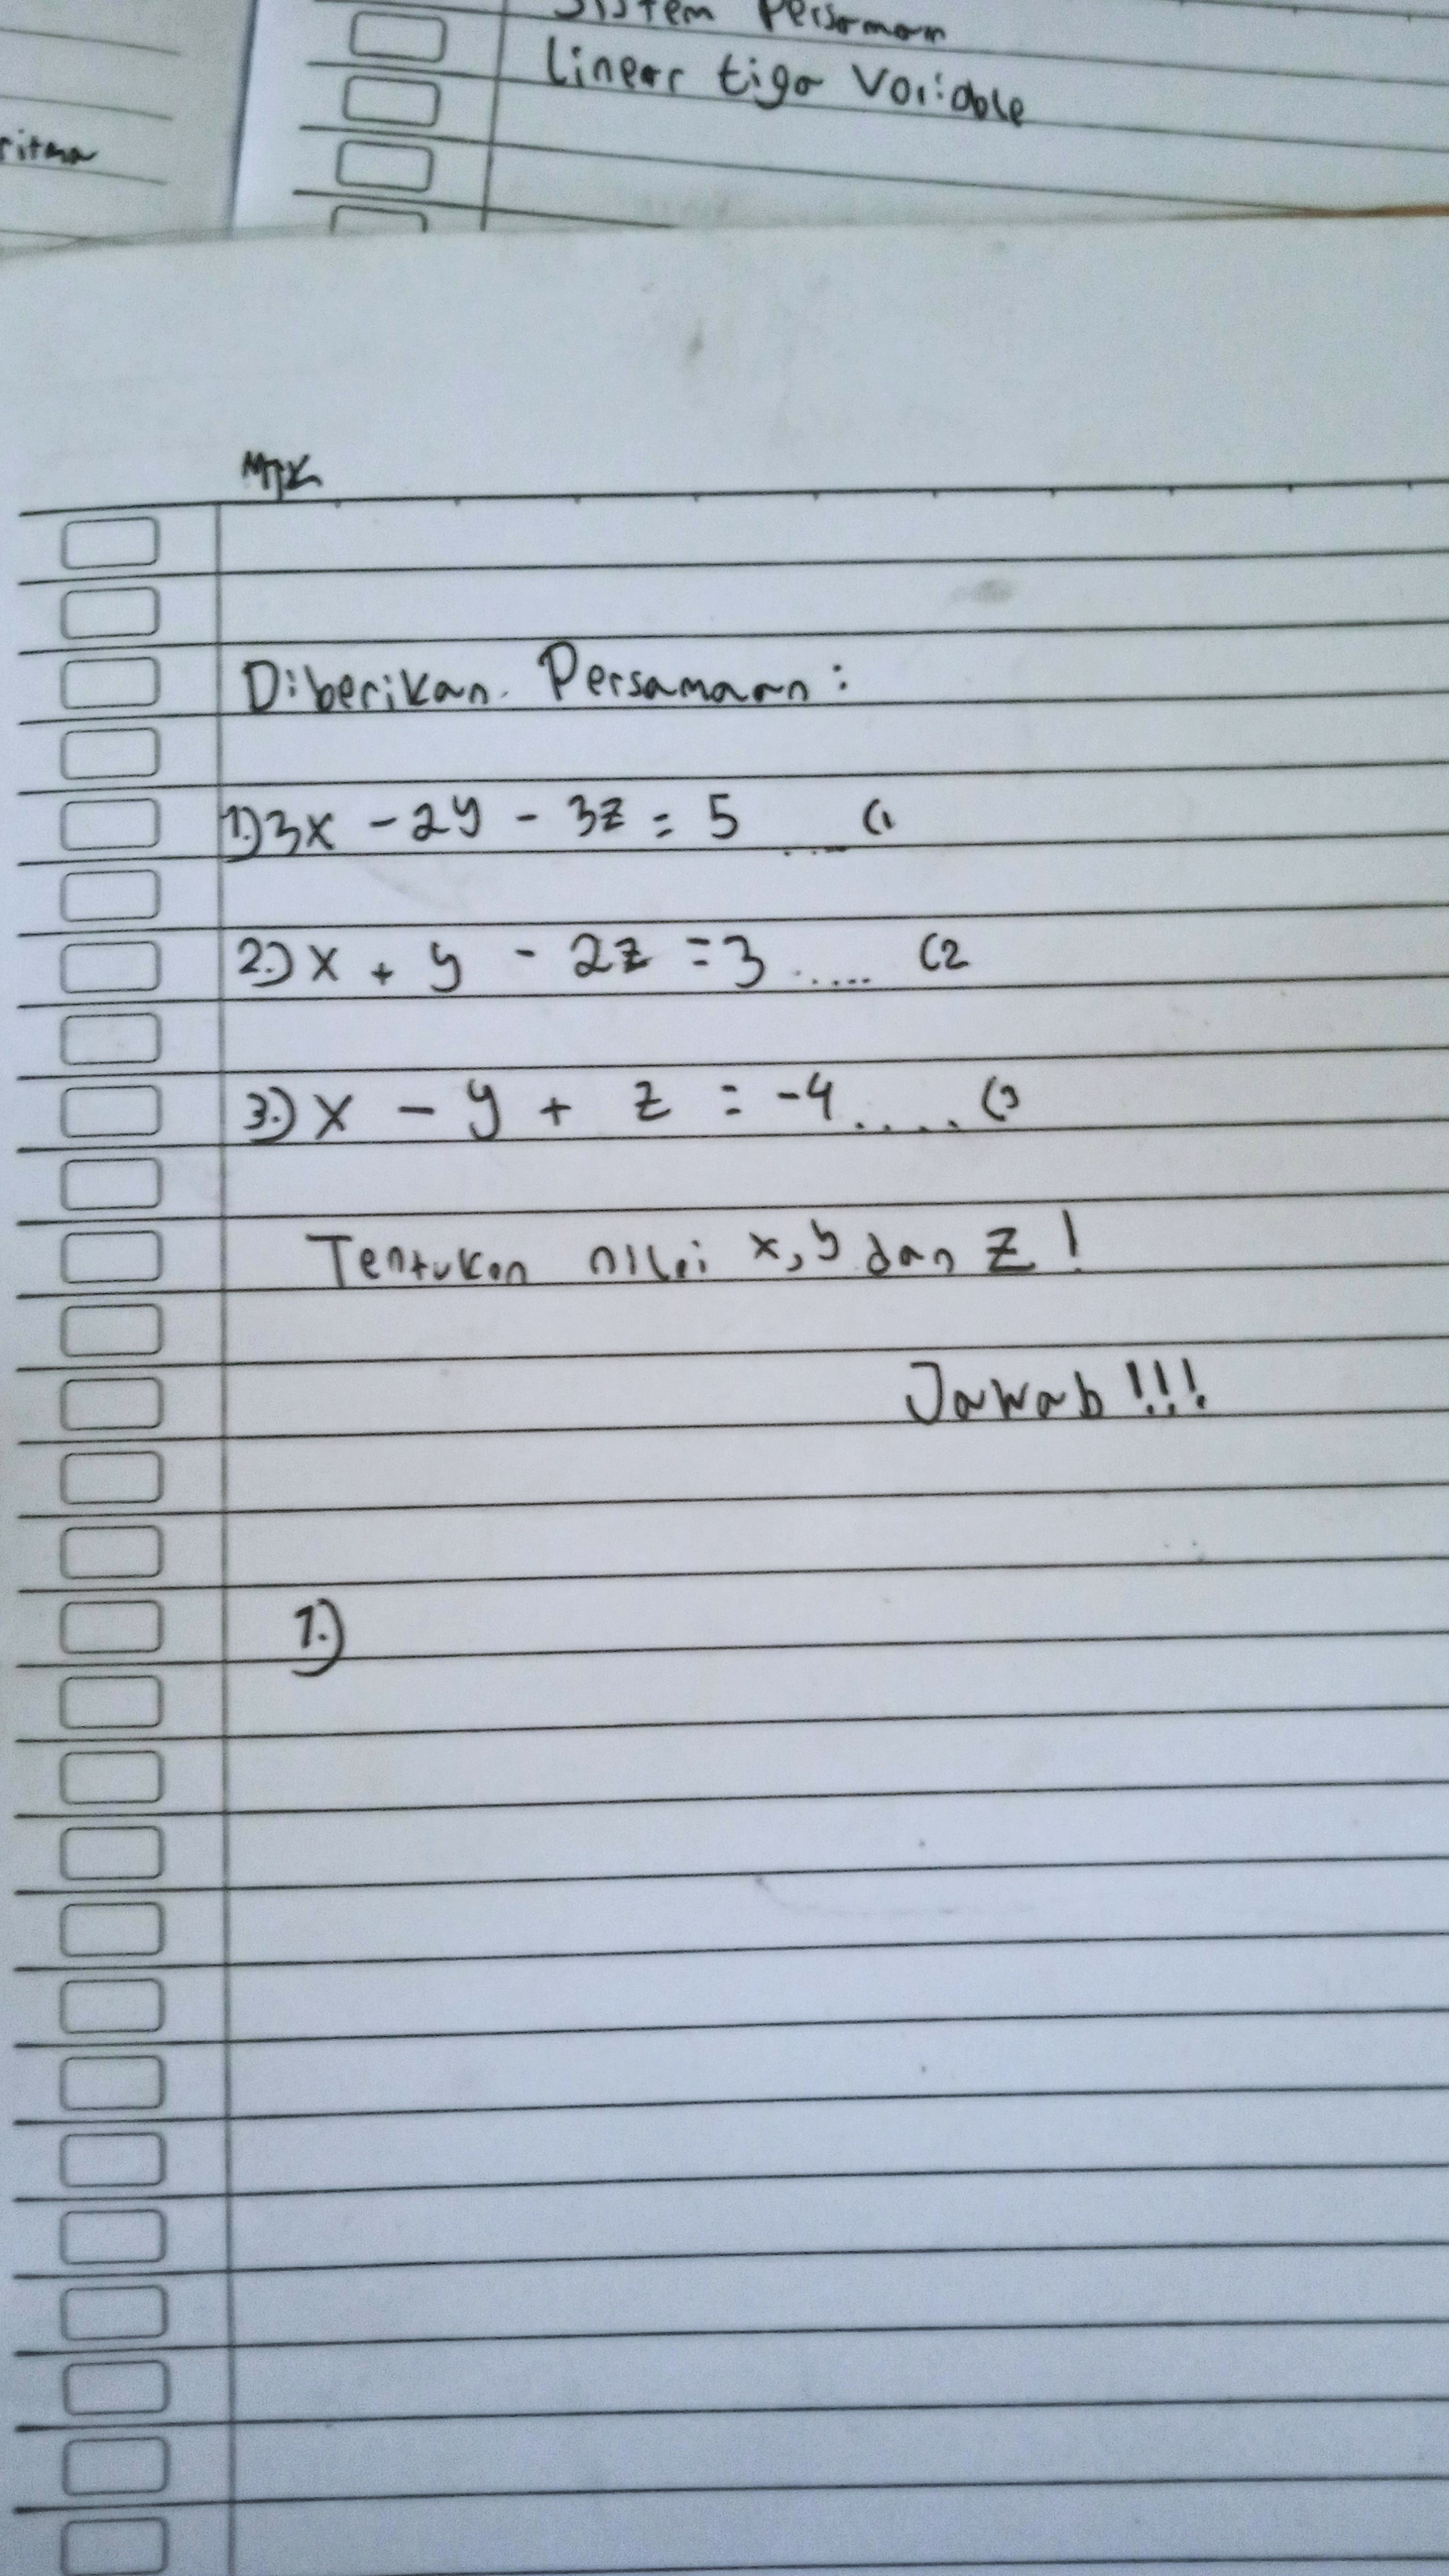 Sistem Persamaan
Linear tiga Variable
ritma
MTK
Diberikan Persamaan :
1.) 3x - 2y - 3z = 5 .... (1
2.) x + y - 2z = 3 ..... (2
3.) x - y + z = -4 ..... (3
Tentukan nilai x, y dan z !
Jawab !!!
1.)